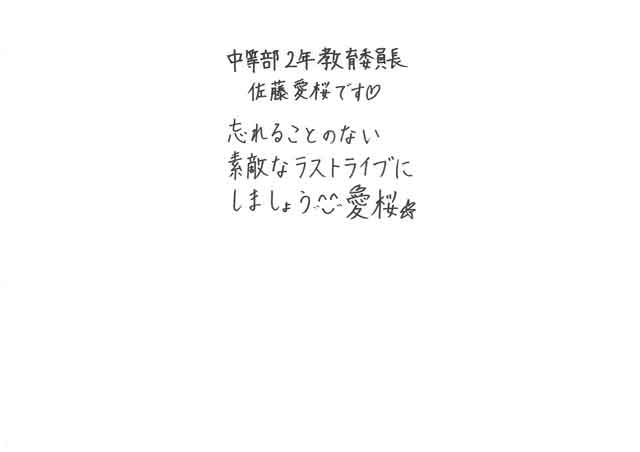 中等部2年教育委員長
佐藤愛桜です♡
忘れることのない
素敵なラストライブに
しましょう 愛桜